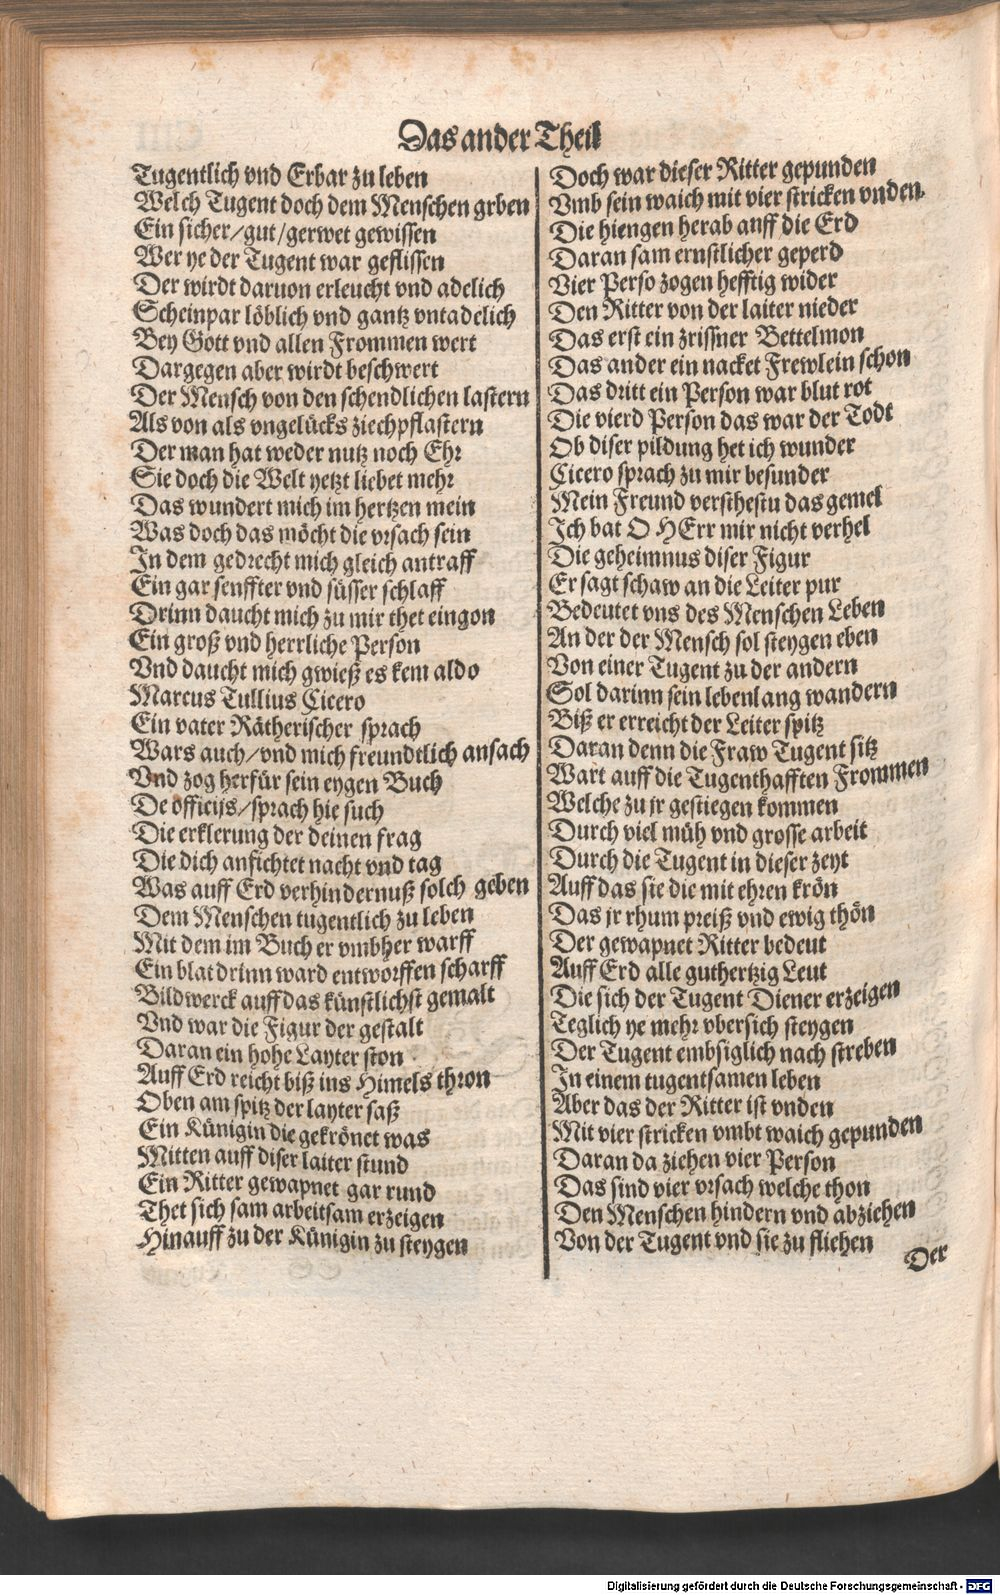 Das ander Theil
Tugentlich vnd Erbar zu leben
Welch Tugent doch dem Menschen grben
Ein sicher/gut/gerwet gewissen
Wer ye der Tugent war geflissen
Der wirdt daruon erleucht vnd adelich
Scheinpar löblich vnd gantz vntadelich
Bey Gott vnd allen Frommen wert
Dargegen aber wirdt beschwert
Der Mensch von den schendlichen lastern
Als von als vngelücks ziechpflastern
Der man hat weder nutz noch Ehr
Sie doch die Welt yetzt liebet mehr
Das wundert mich im hertzen mein
Was doch das möcht die vrsach sein
In dem gedrecht mich gleich antraff
Ein gar senffter vnd süsser schlaff
Drinn daucht mich zu mir thet eingon
Ein groß vnd herrliche Person
Vnd daucht mich gwieß es kem aldo
Marcus Tullius Cicero
Ein vater Rätherischer sprach
Wars auch/vnd mich freundtlich ansach
Vnd zog herfür sein eygen Buch
De officijs/sprach hie such
Die erklerung der deinen frag
Die dich anfichtet nacht vnd tag
Was auff Erd verhindernuß solch geben
Dem Menschen tugentlich zu leben
Mit dem im Buch er vmbher warff
Ein blat drinn ward entworffen scharff
Bildwerck auff das künstlichst gemalt
Vnd war die Figur der gestalt
Daran ein hohe Layter ston
Auff Erd reicht biß ins Himels thron
Oben am spitz der layter saß
Ein Künigin die gekrönet was
Mitten auff diser laiter stund
Ein Ritter gewapnet gar rund
Thet sich sam arbeitsam erzeigen
Hinauff zu der Künigin zu steygen
Doch war dieser Ritter gepunden
Vmb sein waich mit vier stricken vnden.
Die hiengen herab auff die Erd
Daran sam ernstlicher geperd
Vier Perso zogen hefftig wider
Den Ritter von der laiter nieder
Das erst ein zrissner Bettelmon
Das ander ein nacket Frewlein schon
Das dritt ein Person war blut rot
Die vierd Person das war der Todt
Ob diser pildung het ich wunder
Cicero sprach zu mir besunder
Mein Freund versthestu das gemel
Ich bat O HErr mir nicht verhel
Die geheimnus diser Figur
Er sagt schaw an die Leiter pur
Bedeutet vns des Menschen Leben
An der der Mensch sol steygen eben
Von einer Tugent zu der andern
Sol darinn sein lebenlang wandern
Biß er erreicht der Leiter spitz
Daran denn die Fraw Tugent sitz
Wart auff die Tugenthafften Frommen
Welche zu jr gestiegen kommen
Durch viel müh vnd grosse arbeit
Durch die Tugent in dieser zeyt
Auff das sie die mit ehren krön
Das jr rhum preiß vnd ewig thön
Der gewapnet Ritter bedeut
Auff Erd alle guthertzig Leut
Die sich der Tugent Diener erzeigen
Teglich ye mehr vbersich steygen
Der Tugent embsiglich nach streben
In einem tugentsamen leben
Aber das der Ritter ist vnden
Mit vier stricken vmbt waich gepunden
Daran da ziehen vier Person
Das sind vier vrsach welche thon
Den Menschen hindern vnd abziehen
Von der Tugent vnd sie zu fliehen
Der
Digitalisierung gefördert durch die Deutsche Forschungsgemeinschaft - DFG